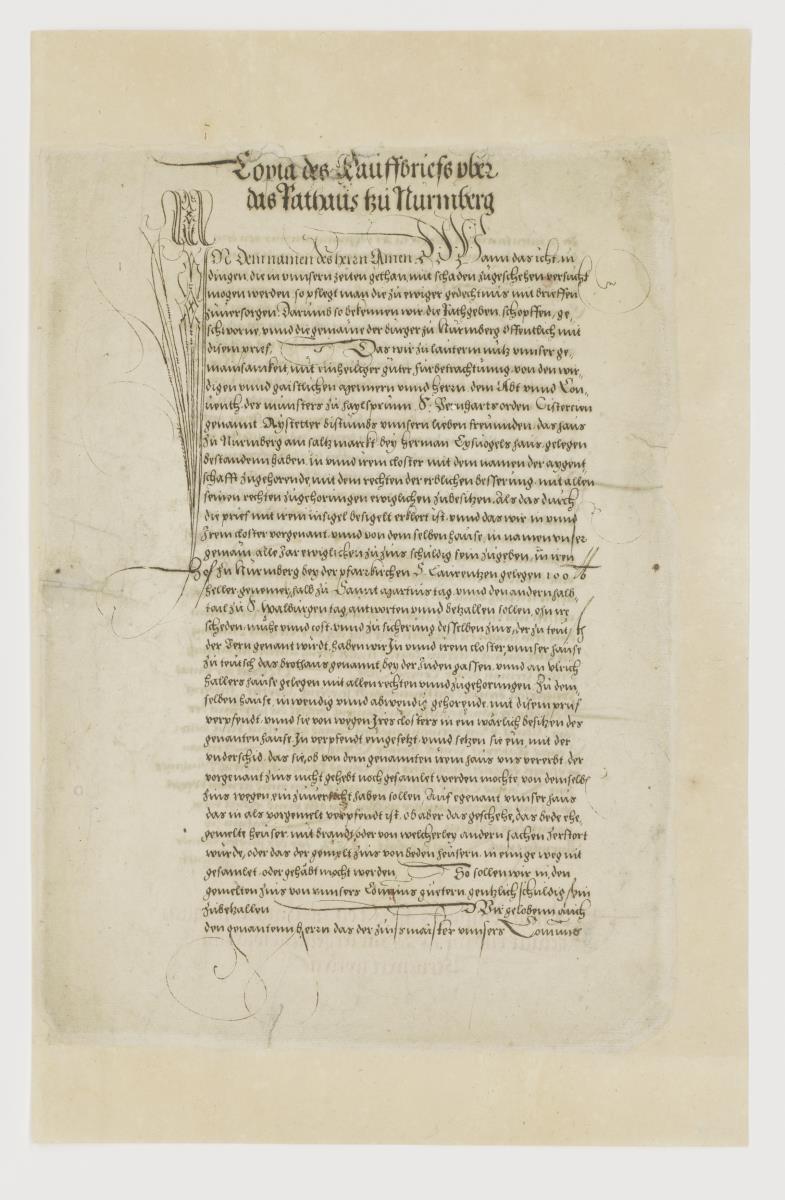 Copia des Kauffbriefs vber
das Rathaus tzu Nurmberg
IN Dem namen des herrn Amen. Wann das icht in
dingen, die in vnnsern zeiten gethan, mit schaden zugeschehen versucht
mogen werden, so pflegt man die zu ewiger gedechtnus mit brieffen
zuuersorgen. Darumb so bekennen wir, die Rathgeben, schopffen, ge,
schworne, vnnd die gemaine der burger zu Nurmberg offentlich mit
disem prief, Das wir zu lauterm nutz vnnser ge,
mainsamkeit, mit einhelliger guter furbetrachtunng, von den wir,
digen vnnd gaistlichen mennern vnnd herrn, dem Abt vnnd Con,
uentz, des munsters zu haylsprunn, S. Bernharts orden, Cistercien
genannt, Aystetter bistumbs vnnsern lieben freunnden, das haus
zu Nurmberg am saltz marckt bey Herman Eysuogels haus, gelegen
bestanden haben, in vnnd irem closter mit dem namen der aygent,
schafft zugehorende, mit dem rechten der erblichen besserung, mit allen
seinen rechten zugehorungen ewiglichen zubesitzen, Als das durch
die prief mit irem insigel besigelt erklert ist, vnnd das wir in vnnd
Irem closter vorgenant, vnnd von dem selben hause, in namen vnser
gemain, alle Jar ewiglichen zu zins schuldig sein zugeben, in iren
Hof zu Nurmberg bey der pfarrkirchen S. Laurentzen gelegen 100 ℔
heller genemer, halb zu Sannt martins tag, vnnd den andern halb,
tail zu S. Walburgen tag, antworten vnnd betzallen sollen, on ire
scheden, muhe vnnd cost, vnnd zu sicherung desselben zins, der zu teut,
der Bern genant wurdt, haben wir in vnnd irem closter, vnnser hause
zu teutsch das brothaus genannt, bey der Juden gassen, vnnd an vlrich
hallers hause gelegen mit allen rechten vnnd zugehorungen, zu dem,
selben hause, inwendig vnnd abwendig gehorende, mit disem prief
verpfendt, vnnd sie von wegen Ires closters in ein warlich besitzen des
genanten hause, zu verpfendt eingesetzt, vnnd setzen sie ein, mit der
vnderschid, das sie, ob von dem genannten irem haus vns vererbt, der
vorgenant zins nicht gehebt noch gesamlet werden mochte, von demselben
zins wegen, ein zuuersicht haben sollen, Auf egenant vnnser haus
das in als vorgemelt verpfendt ist, ob aber das geschehe, das bede ehe,
gemelte heuser, mit brandt, oder von welcherley andern sachen zerstort
wurde, oder das der gemelt zins von beden heusern, in einige weg nit
gesamlet, oder gehabt mocht werden, So sollen wir in, den
gemelten zins von vnnsers Comuns guetern gentzlich schuldig sein
zubetzallen Wir gelobenn auch
den genantenn herrn das der zinsmaister vnnsers Comuns